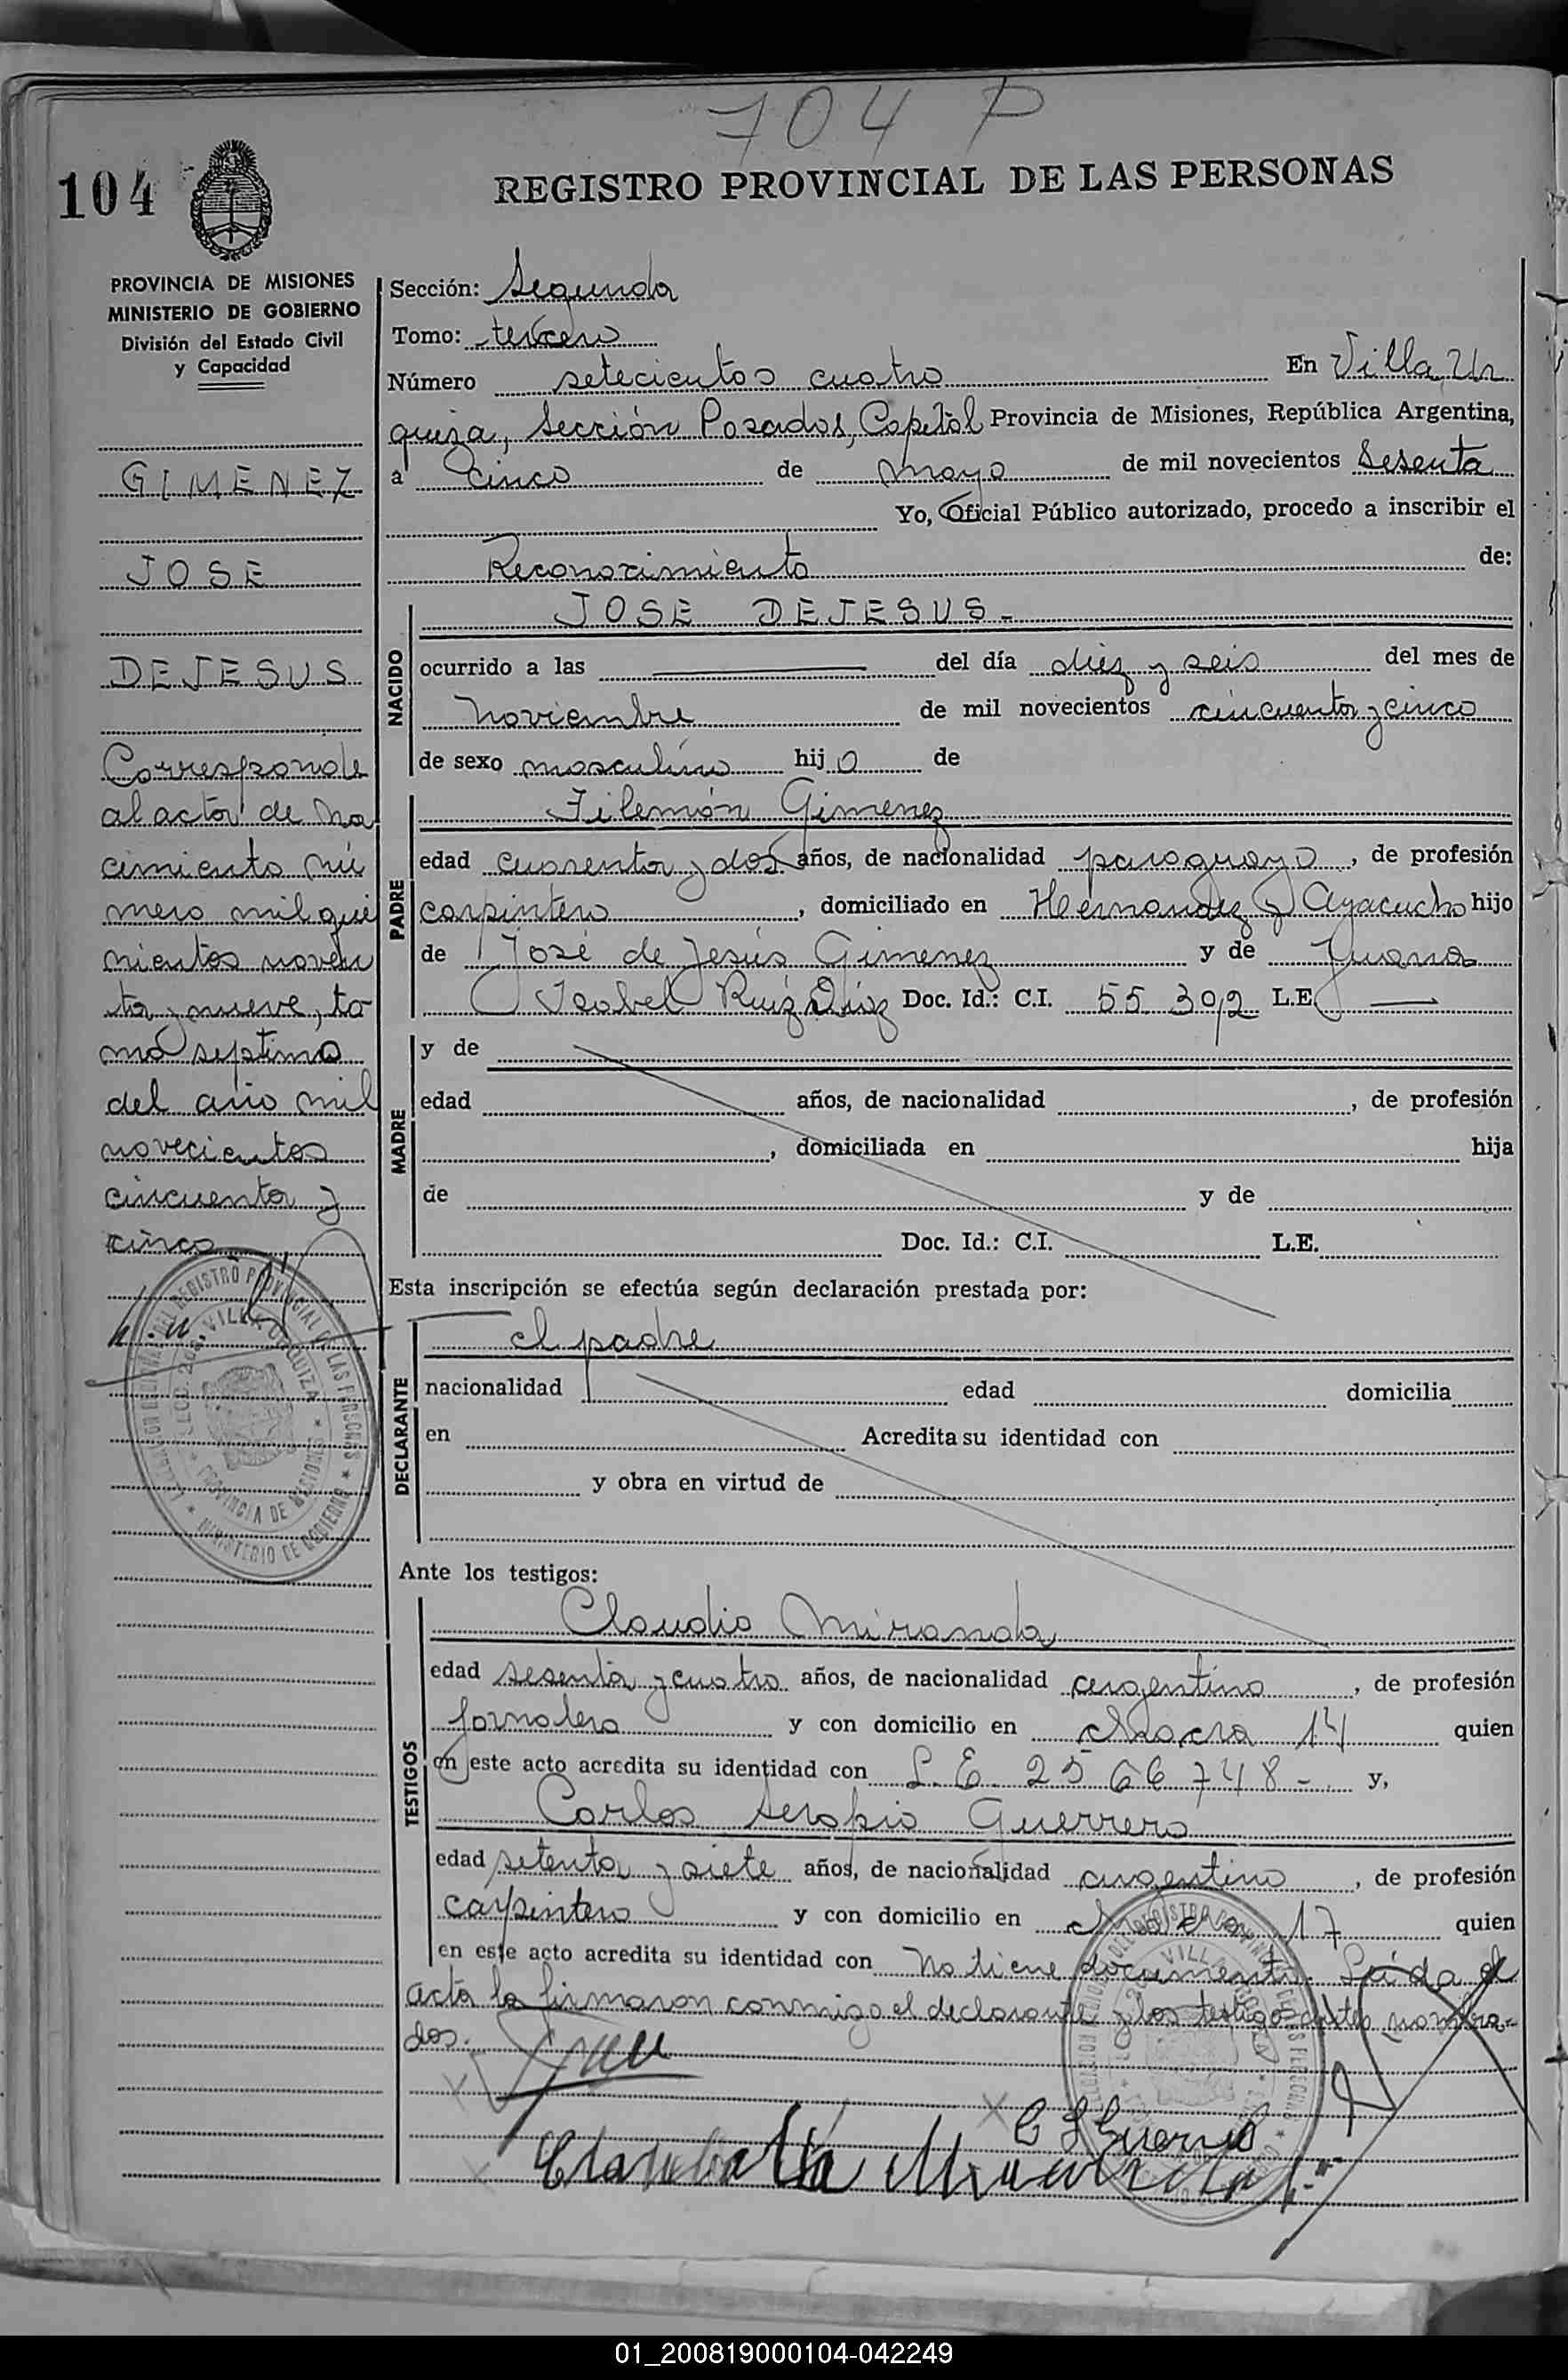 704 P
104
REGISTRO PROVINCIAL DE LAS PERSONAS
PROVINCIA DE MISIONES
MINISTERIO DE GOBIERNO
División del Estado Civil
y Capacidad
GIMENEZ
JOSE
DEJESUS
Corresponde
al acta de na
cimiento nú
mero mil qui
nientos noven
ta y nueve, to
mo septimo
del año mil
novecientos
cincuenta y
cinco
Sección: Segunda
Tomo: tercero
Número setecientos cuatro En Villa Ur
quiza, Sección Posadas, Capital Provincia de Misiones, República Argentina,
a cinco de mayo de mil novecientos sesenta
Yo, Oficial Público autorizado, procedo a inscribir el
Reconocimiento de:
NACIDO
JOSE DEJESUS.-
ocurrido a las del día diez y seis del mes de
noviembre de mil novecientos cincuenta y cinco
de sexo masculino hijo de
PADRE
Filemón Gimenez
edad cuarenta y dos años, de nacionalidad paraguayo, de profesión
carpintero, domiciliado en Hernandez y Ayacucho hijo
de José de Jesús Gimenez y de Juana
Isabel Ruiz Diaz Doc. Id.: C.I. 55.392 L.E.
MADRE
y de
edad años, de nacionalidad , de profesión
, domiciliada en hija
de y de
Doc. Id.: C.I. L.E.
Esta inscripción se efectúa según declaración prestada por:
DECLARANTE
el padre
nacionalidad edad domicilia
en Acredita su identidad con
y obra en virtud de
Ante los testigos:
TESTIGOS
Claudio Miranda
edad sesenta y cuatro años, de nacionalidad argentino, de profesión
jornalero y con domicilio en chacra 14 quien
en este acto acredita su identidad con L.E. 2566748- y,
Carlos Serapio Guerrero
edad setenta y siete años, de nacionalidad argentino, de profesión
carpintero y con domicilio en chacra 17 quien
en este acto acredita su identidad con No tiene documento. Leída el
acta la firmaron conmigo el declarante y los testigos antes nombra-
dos.
C S Guerrero
Miranda
REGISTRO PROVINCIAL DE LAS PERSONAS
VILLA URQUIZA
PROVINCIA DE MISIONES
MINISTERIO DE GOBIERNO
01_200819000104-042249